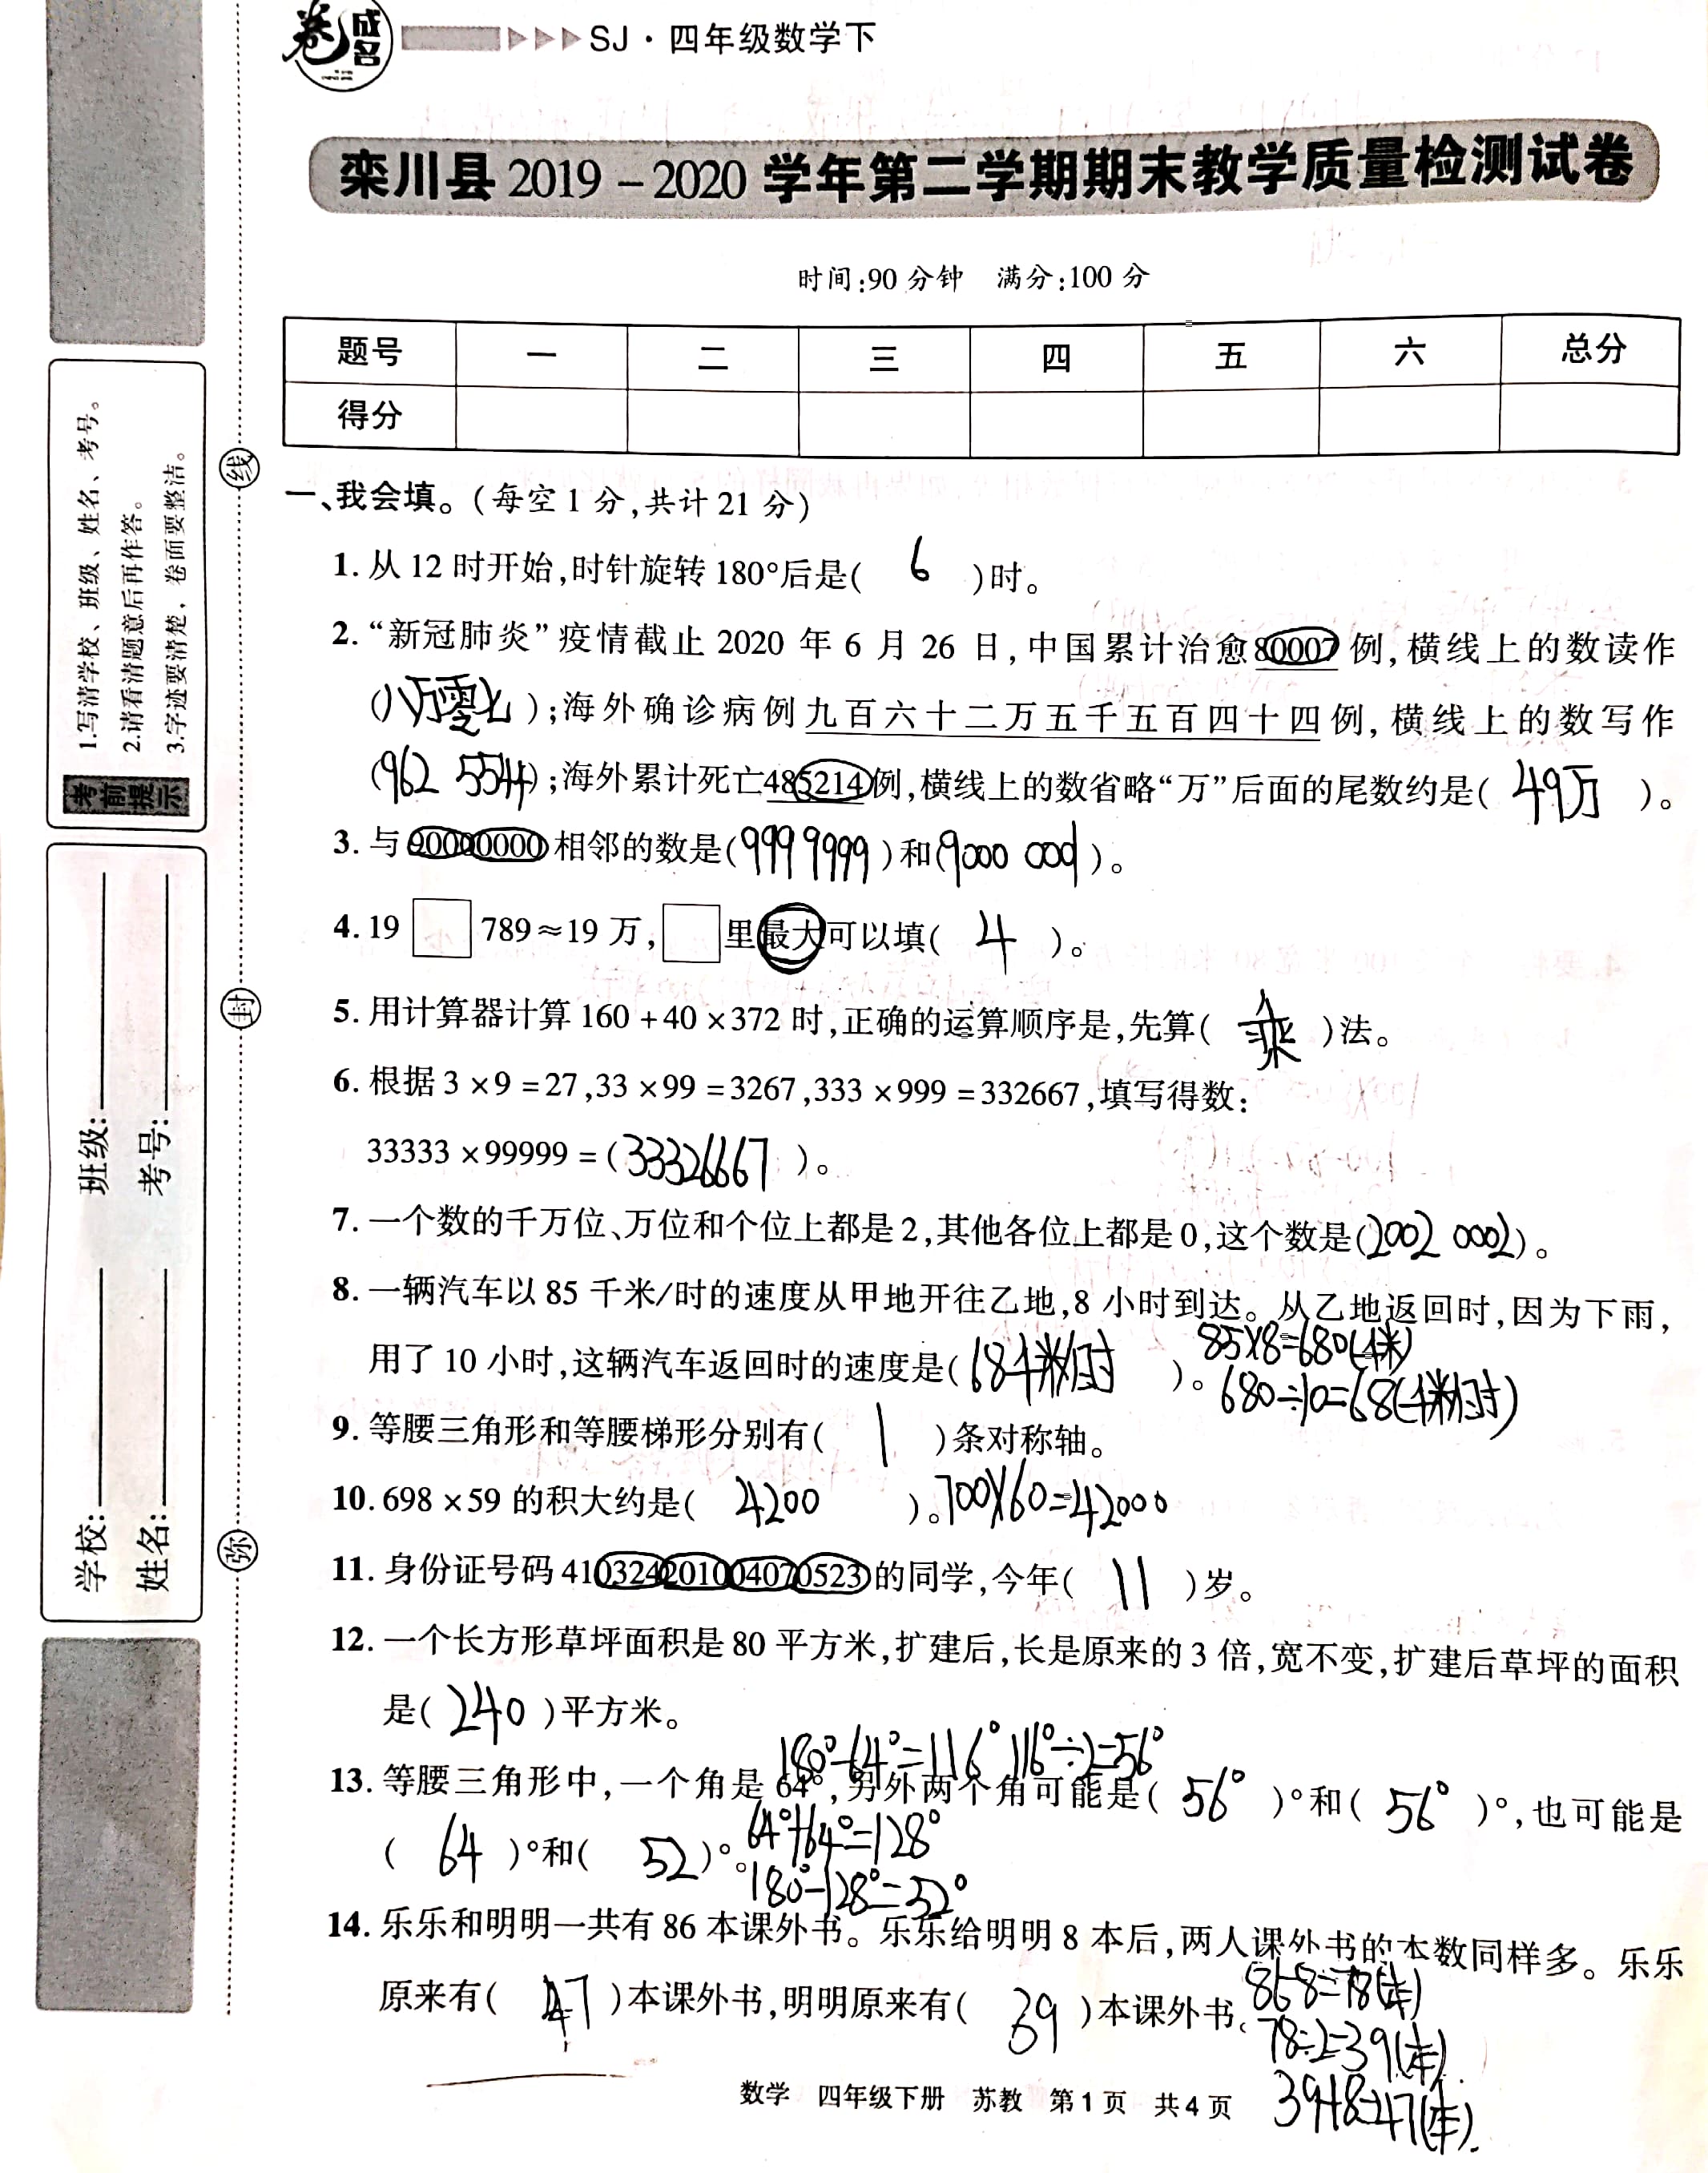 卷成名 SJ·四年级数学下
栾川县2019-2020学年第二学期期末教学质量检测试卷
时间:90分钟 满分:100分
题号 一 二 三 四 五 六 总分
得分
一、我会填。(每空1分,共计21分)
1. 从12时开始,时针旋转180°后是( 6 )时。
2. “新冠肺炎”疫情截止2020年6月26日,中国累计治愈80007例,横线上的数读作
(八万零七);海外确诊病例九百六十二万五千五百四十四例,横线上的数写作
(962 5544);海外累计死亡485214例,横线上的数省略“万”后面的尾数约是( 49万 )。
3. 与90000000相邻的数是(9999999)和(9000 0001)。
4. 19□789≈19万,□里最大可以填( 4 )。
5. 用计算器计算160+40×372时,正确的运算顺序是,先算( 乘 )法。
6. 根据3×9=27,33×99=3267,333×999=332667,填写得数:
33333×99999=(33326667)。
7. 一个数的千万位、万位和个位上都是2,其他各位上都是0,这个数是(2002 0002)。
8. 一辆汽车以85千米/时的速度从甲地开往乙地,8小时到达。从乙地返回时,因为下雨,
85×8=680(千米)
用了10小时,这辆汽车返回时的速度是( 68千米/时 )。
680÷10=68(千米/时)
9. 等腰三角形和等腰梯形分别有( 1 )条对称轴。
10. 698×59的积大约是( 4200 )。700×60=42000
11. 身份证号码410324201004070523的同学,今年( 11 )岁。
12. 一个长方形草坪面积是80平方米,扩建后,长是原来的3倍,宽不变,扩建后草坪的面积
是( 240 )平方米。
180°-64°=116° 116°÷2=56°
13. 等腰三角形中,一个角是64°,另外两个角可能是( 56° )°和( 56° )°,也可能是
( 64 )°和( 52 )°。64°+64°=128°
180°-128°=52°
14. 乐乐和明明一共有86本课外书。乐乐给明明8本后,两人课外书的本数同样多。乐乐
原来有( 47 )本课外书,明明原来有( 39 )本课外书。
86-8=78(本)
78÷2=39(本)
39+8=47(本)
数学 四年级下册 苏教 第1页 共4页
考前提示
1.写清学校、班级、姓名、考号。
2.请看清题意后再作答。
3.字迹要清楚,卷面要整洁。
学校: 班级:
姓名: 考号:
线
封
弥